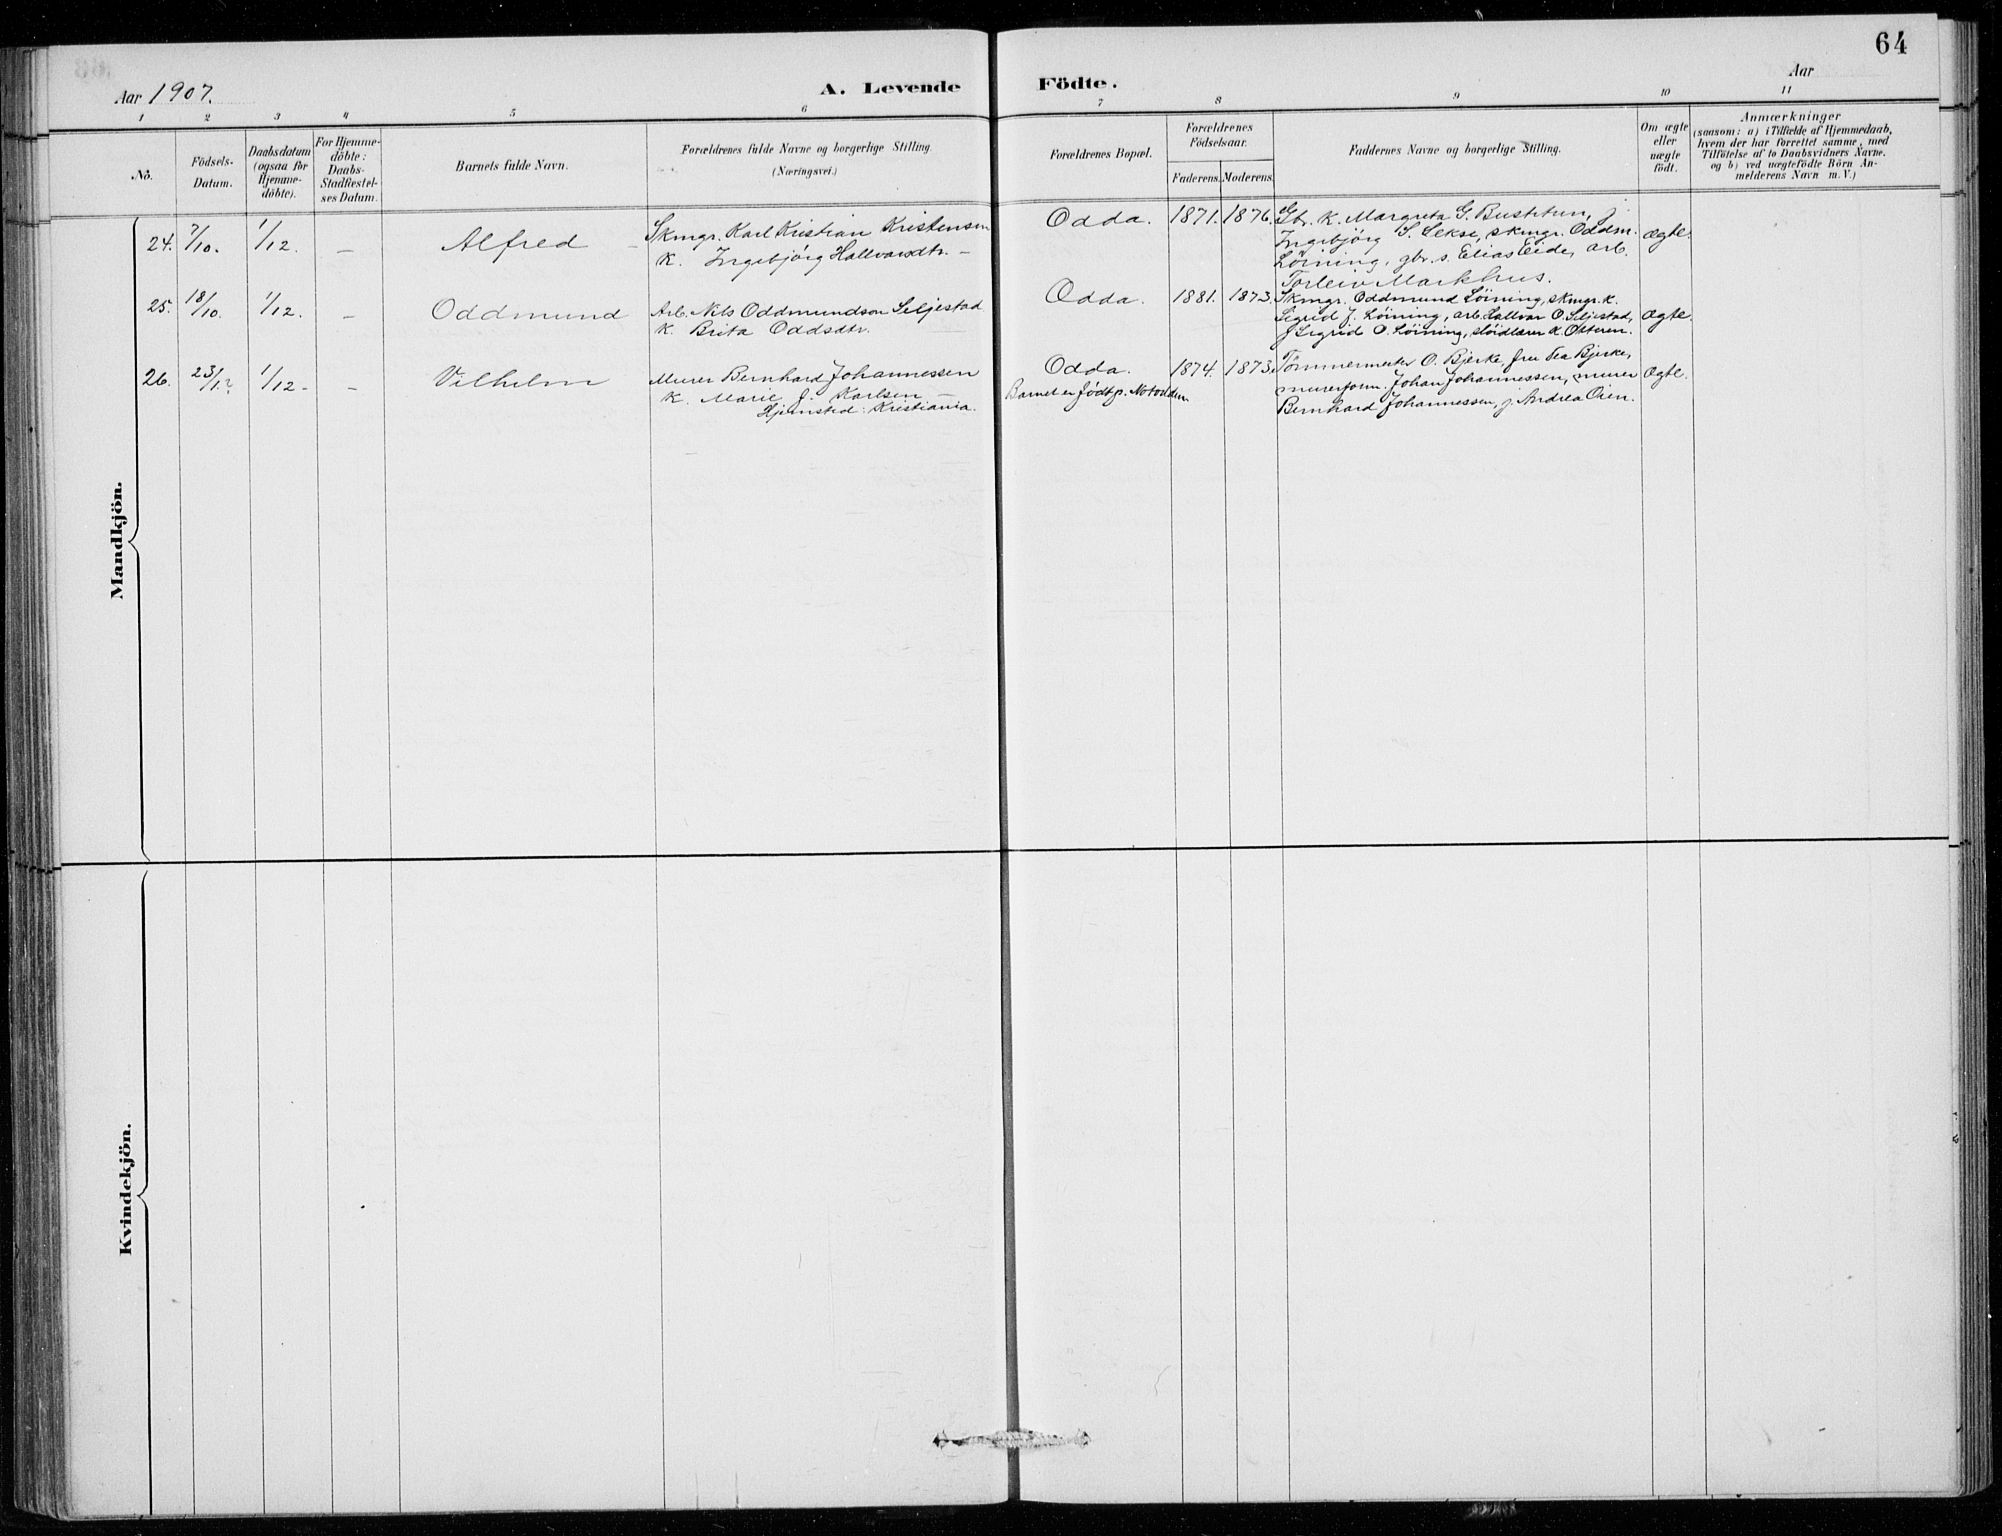 64
Aar 1907.
A. Levende Födte.
Aar
1 2 3 4 5 6 7 8 9 10 11
No.
Födsels-Datum.
Daabsdatum (ogsaa for Hjemme-döbte).
For Hjemme-döbte: Daabs-Stadfæstel-ses Datum.
Barnets fulde Navn.
Forældrenes fulde Navne og borgerlige Stilling
(Næringsvei.)
Forældrenes Bopæl.
Forældrenes Födselsaar.
Faderens. Moderens.
Faddernes Navne og borgerlige Stilling.
Om ægte eller uægte födt.
Anmærkninger
(saasom: a) i Tilfælde af Hjemmedaab,
hvem der har forrettet samme, med
Tilföielse af to Daabsvidners Navne.
og b) ved uægtefödte Börn An-
melderens Navn m. V.)
Mandkjön.
24. 7/10. 1/12. – Alfred –
Skmgr. Karl Kristian Kristensen
K. Ingebjörg Hallvardsdtr. –
Odda. 1871. 1876.
Gbr. K. Margreta G. Bustetun, j
Ingebjörg S. Sekse, skmgr. Oddm.
Löining, gbr. s. Elias Eide, arb.
Torleiv Markhus.
ægte.
25. 18/10. 1/12. – Oddmund
Arb. Nils Oddmundson Seljestad
K Brita Oddsdtr.
Odda. 1881. 1873.
Skmgr. Oddmund Löining, skmgr. K.
Sigrid J. Löining, arb. Hallvar O. Seljestad,
j Sigrid O. Löining, slöidlærer K.
ægte.
26. 23/12 1/12 – – Vilhelm
Murer Bernhard Johannessen
K. Marie J. Karlsen –
Hjemsted: Kristiania.
Odda. 1874. 1873.
Barnet er födt p. Notodden
Tömmermester O. Bjerke, fru Tea Bjerke,
murerform. Johan Johannessen, murer
Bernhard Johannessen, j. Andrea Öien.
ægte.
Kvindekjön.